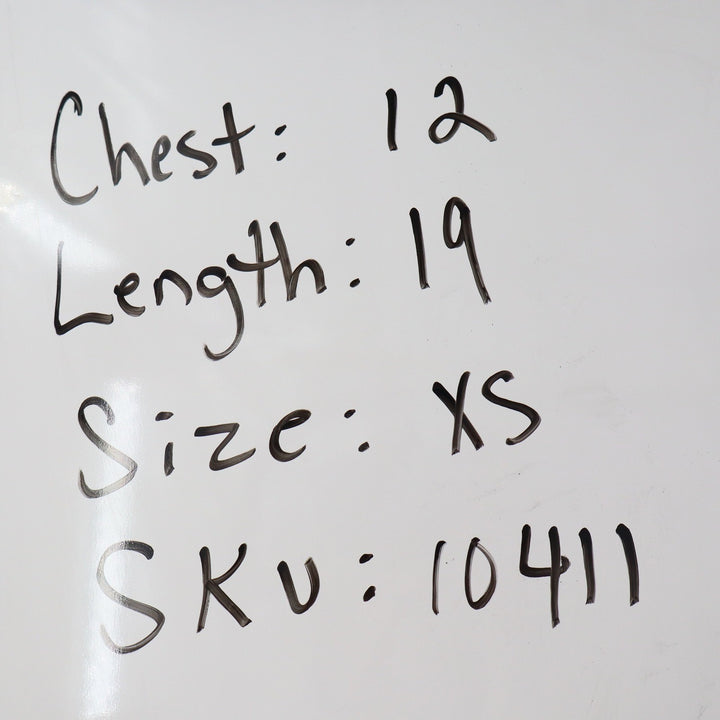 Chest: 12
Length: 19
Size: XS
SKU: 10411